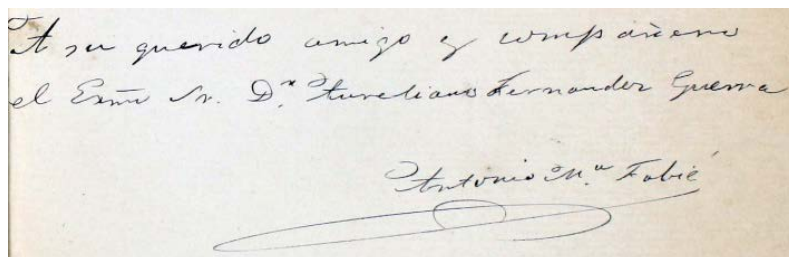 A su querido amigo y compañero
el Exmo Sr. Dn. Aureliano Fernandez Guerra
Antonio Mª Fabié